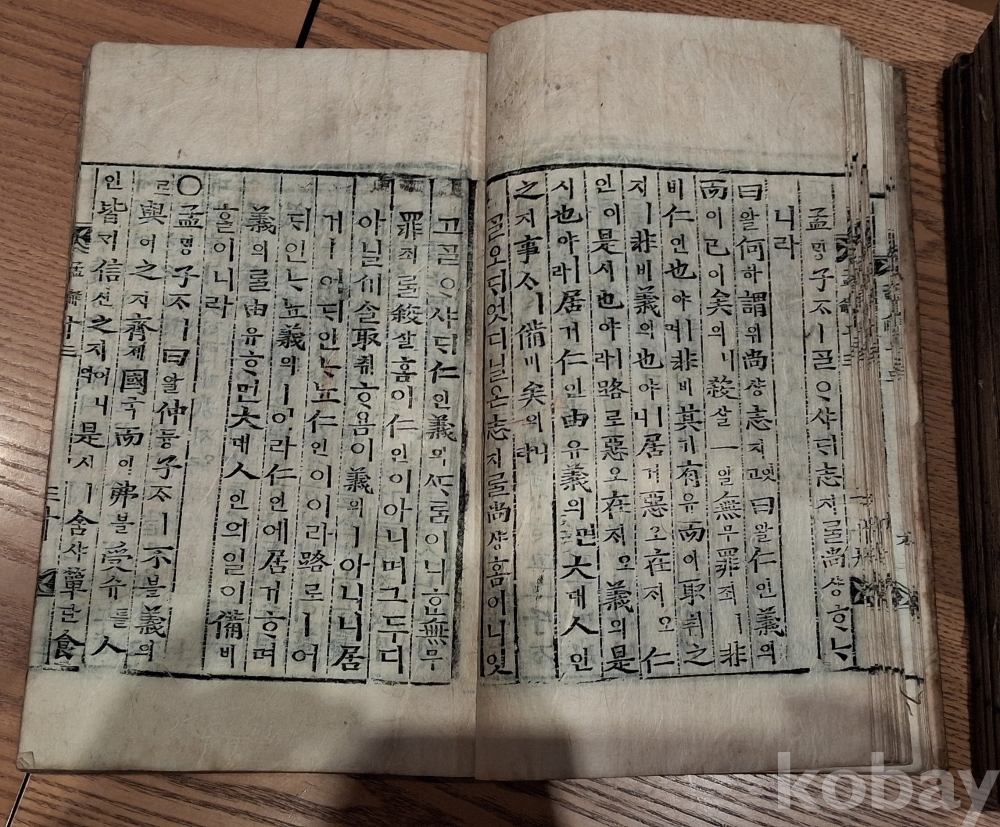 孟ᄆᆡᆼ子ᄌᆞㅣᄀᆞᆯᄋᆞ샤ᄃᆡ志지ᄅᆞᆯ尚샹ᄒᆞᄂ
니라
曰왈何하謂위尚샹志지고잇曰왈仁인義의
而이已이矣의니殺살一일無무罪죄ㅣ非
비仁인也야ㅣ며非비其기有유而이取취之
지ㅣ非비義의也야ㅣ니居거惡오在ᄌᆡ오仁
인이是시也야ㅣ라路로惡오在ᄌᆡ오義의是
시也야ㅣ라居거仁인由유義의면大대人인
之지事ᄉᆞㅣ備비矣의니라
ᄀᆞᆯ오ᄃᆡ엇디닐온志지ᄅᆞᆯ尚샹홈이니잇
고ᄀᆞᆯᄋᆞ샤ᄃᆡ仁인義의ᄯᆞᄅᆞᆷ이니ᄒᆞᆫ無무
罪죄ᄅᆞᆯ殺살홈이仁인이아니며그두디
아닐거슬取취홈이義의ㅣ아니니居
거ㅣ어ᄃᆡ인ᄂᆞ뇨仁인이이라路로ㅣ어
ᄃᆡ인ᄂᆞ뇨義의ㅣ이라仁인에居거ᄒᆞ며
義의ᄅᆞᆯ由유ᄒᆞ면大대人인의일이備비
홀이니라
○孟ᄆᆡᆼ子ᄌᆞㅣ曰왈仲듕子ᄌᆞㅣ不블義의
로與여之지齊졔國국而이弗블受슈를人
인皆ᄀᆡ信신之지여니是시ㅣ舍샤簞단食
孟解十三
三十
kobay